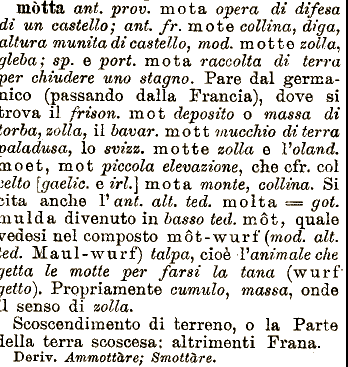 mòtta ant. prov. mota opera di difesa
di un castello; ant. fr. mote collina, diga,
altura munita di castello, mod. motte zolla,
gleba; sp. e port. mota raccolta di terra
per chiudere uno stagno. Pare dal germa-
nico (passando dalla Francia), dove si
trova il frison. mot deposito o massa di
torba, zolla, il bavar. mott mucchio di terra
paladusa, lo svizz. motte zolla e l'oland.
moet, mot piccola elevazione, che cfr. col
celto [gaelic. e irl.] mota monte, collina. Si
cita anche l'ant. alt. ted. molta = got.
mulda divenuto in basso ted. môt, quale
vedesi nel composto môt-wurf (mod. alt.
ted. Maul-wurf) talpa, cioè l'animale che
getta le motte per farsi la tana (wurf
getto). Propriamente cumulo, massa, onde
il senso di zolla.
Scoscendimento di terreno, o la Parte
della terra scoscesa: altrimenti Frana.
Deriv. Ammottàre; Smottàre.